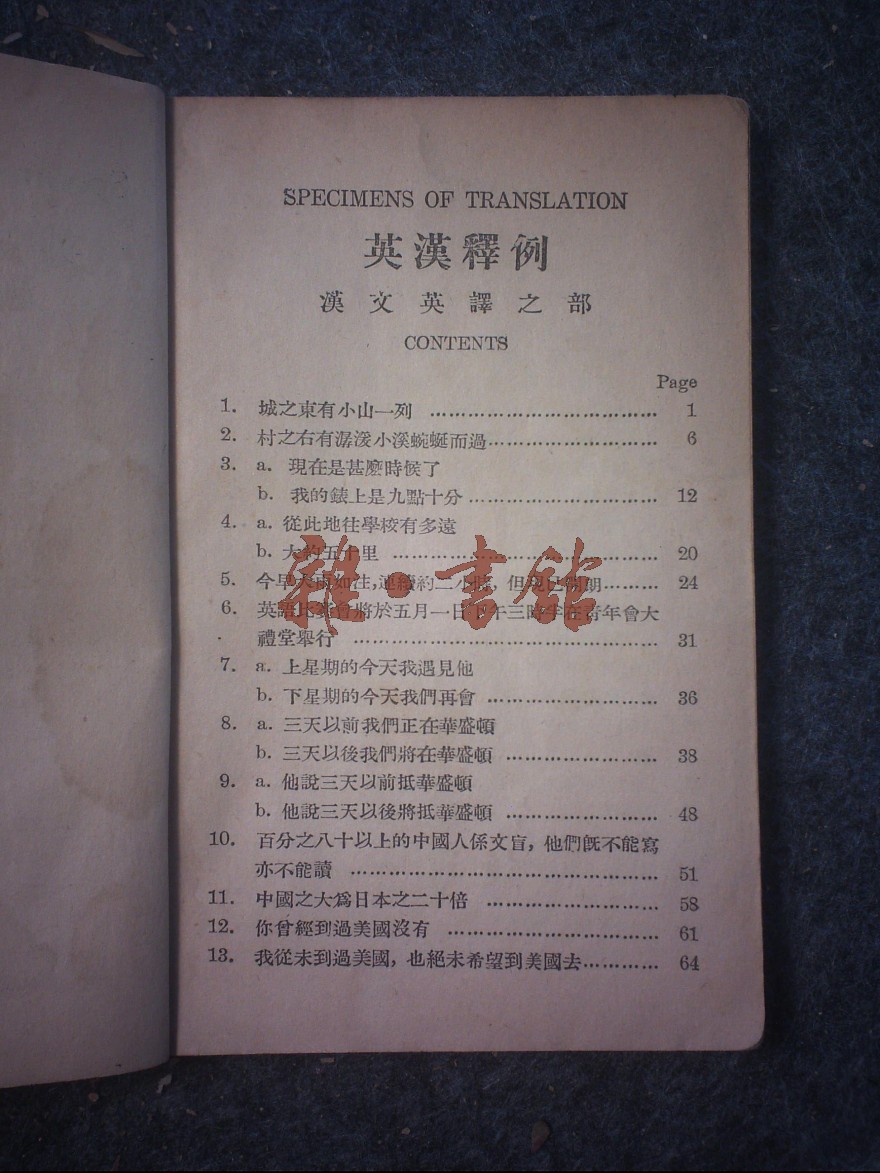 SPECIMENS OF TRANSLATION
英漢釋例
漢文英譯之部
CONTENTS
Page
1. 城之東有小山一列 ……………………………… 1
2. 村之右有潺湲小溪蜿蜒而過……………………… 6
3. a. 現在是甚麽時候了
b. 我的錶上是九點十分………………………… 12
4. a. 從此地往學校有多遠
b. 大約五十里 …………………………………… 20
5. 今早大雨如注,連續約二小時,但現已晴朗……… 24
6. 英語比賽會將於五月一日下午三時半在青年會大
禮堂舉行 ………………………………………… 31
7. a. 上星期的今天我遇見他
b. 下星期的今天我們再會 ……………………… 36
8. a. 三天以前我們正在華盛頓
b. 三天以後我們將在華盛頓 …………………… 38
9. a. 他說三天以前抵華盛頓
b. 他說三天以後將抵華盛頓 …………………… 48
10. 百分之八十以上的中國人係文盲,他們旣不能寫
亦不能讀 ………………………………………… 51
11. 中國之大爲日本之二十倍 ……………………… 58
12. 你曾經到過美國沒有 …………………………… 61
13. 我從未到過美國,也絕未希望到美國去………… 64
雜·書館